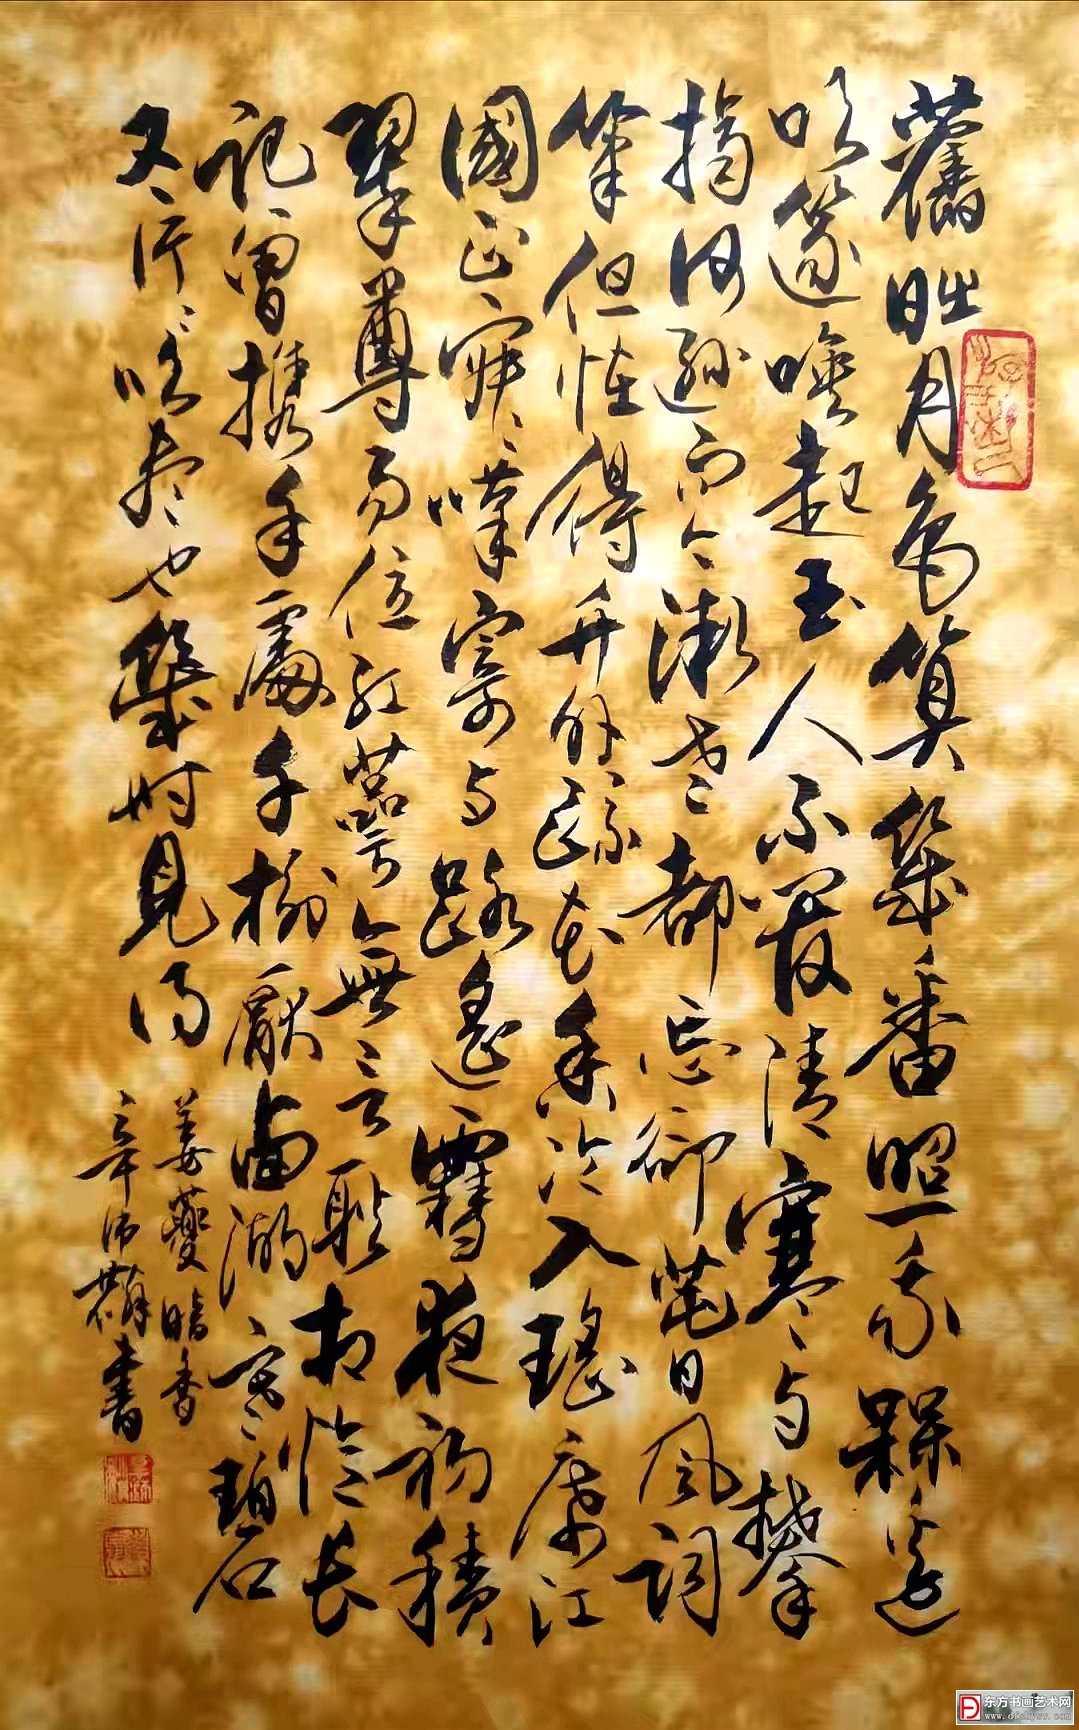 舊時月色算幾番照我楳邊
吹篴喚起玉人不管清寒与攀
摘何遜而今漸老都忘卻萅風詞
筆但怪得竹外疏花香冷入瑤席江
國正寂寂嘆寄与路遙雪夜初積
翠尊易泣紅萼無言耿相憶長
記曾攜手處千樹壓西湖寒碧
又片片吹盡也幾時見得
姜夔暗香
書
东方书画艺术网